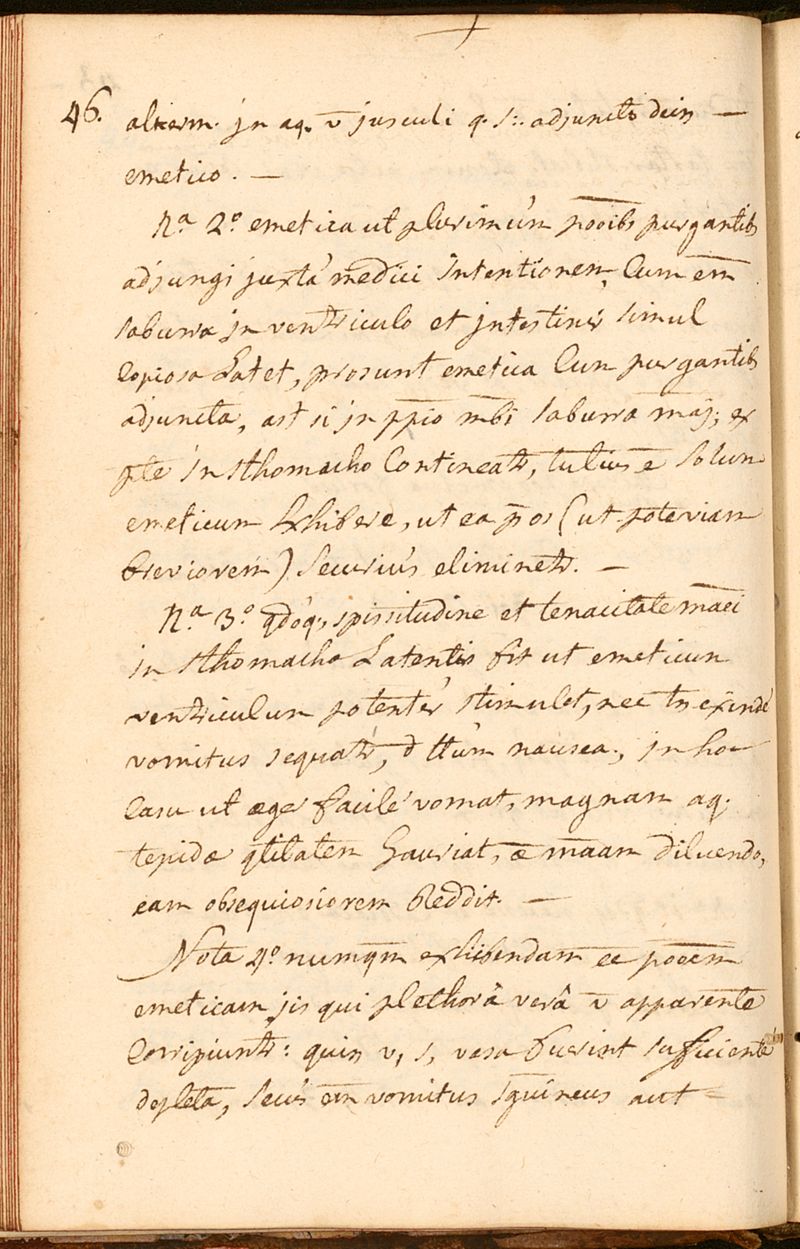 46. altern. jn aq. v̄ jusculi q. s: adjuncto dein —
emetico. —
N.ª 2.º emetica ut plurimùm p̄oc̄ibs purgantib̄
adjungi juxtà medici Intentionem, Cum em̄
Saburra jn ventriculo et jntestinis simul
Copiosa Latet, prosunt emetica Cum purgantib̄
adjuncta, ast si jn p̄p̄io m̄bi Saburra māj; ex
p̄te in sthomacho Contineatr, tutius ē Solum
emeticum Exhibere, ut ea p̄ os (ut pote viam
breviorem) Securiùs eliminetr. —
N.ª 3.º qdoq; spissitudine et tenacitate māei
in sthomacho Latentis fit ut emeticum
ventriculum potentèr stimulet, nec tn exinde
vomitus sequatr, d ttùm nausea, jn hoc
Casu ut æger facilè vomat, magnam aq.
tepidæ q̄titatem hauriat, æ māam diluendo,
eam obsequiosiorem Reddit. —
Nota 4.º numqm exhibendam ēē pōēm
emeticam jis qui plethorâ verâ v̄ apparente
Corripiuntr: quin v, s, vasa fuerint sufficientè
depleta, Secùs em̄ vomitus sguineus aut =